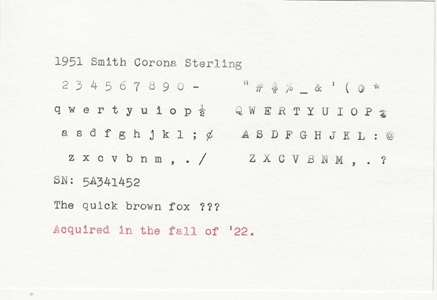 1951 Smith Corona Sterling
2 3 4 5 6 7 8 9 0 - " # $ % _ & ' ( O *
q w e r t y u i o p ½ Q W E R T Y U I O P ¼
a s d f g h j k l ; ¢ A S D F G H J K L : @
z x c v b n m , . / Z X C V B N M , . ?
SN: 5A341452
The quick brown fox ???
Acquired in the fall of '22.